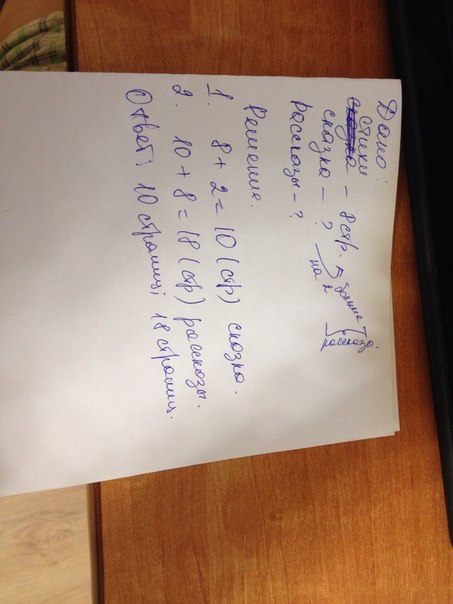 Дано:
стихи – 8 стр.
сказка – ? на 2 больше
Рассказы – ? рассказы.
Решение.
1. 8 + 2 = 10 (стр) сказка.
2. 10 + 8 = 18 (стр) рассказы.
Ответ: 10 страниц; 18 страниц.